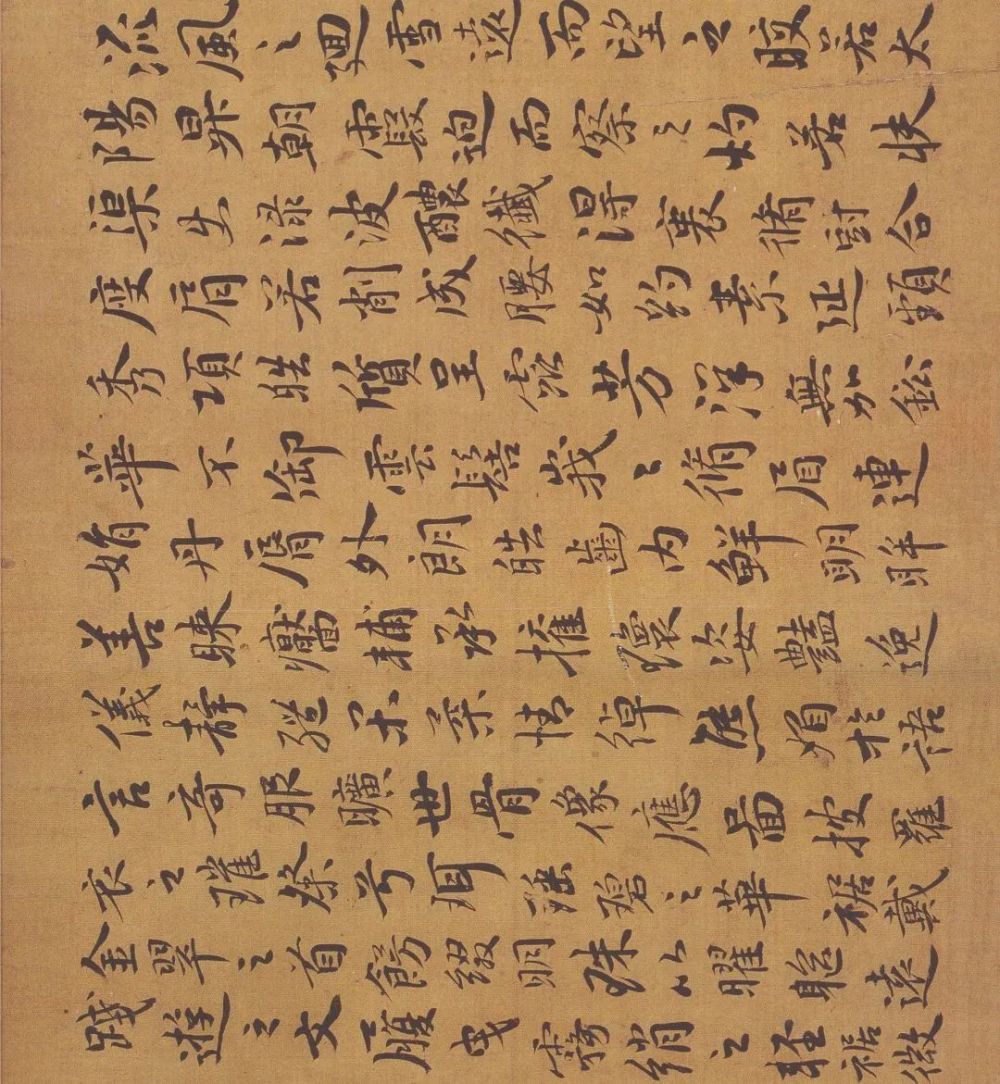 流風之廻雪遠而望之晈若太
陽昇朝霞迫而察之灼若芙
渠出淥波醲纖得衷脩短合
度肩若削成腰如約素延頸
秀項皓質呈露芳澤無加鉛
華不御雲髻峩〻脩眉連
娟丹脣外朗皓齒內鮮明眸
善睞靨輔承權瓌姿豔逸
儀靜柔情綽態媚於語
言奇服曠世骨像應圖披羅
衣之璀粲兮珥瑤碧之華裾戴
金翠之首飾綴明珠以曜軀遠
踐遊之文履曳霧綃之輕裾微